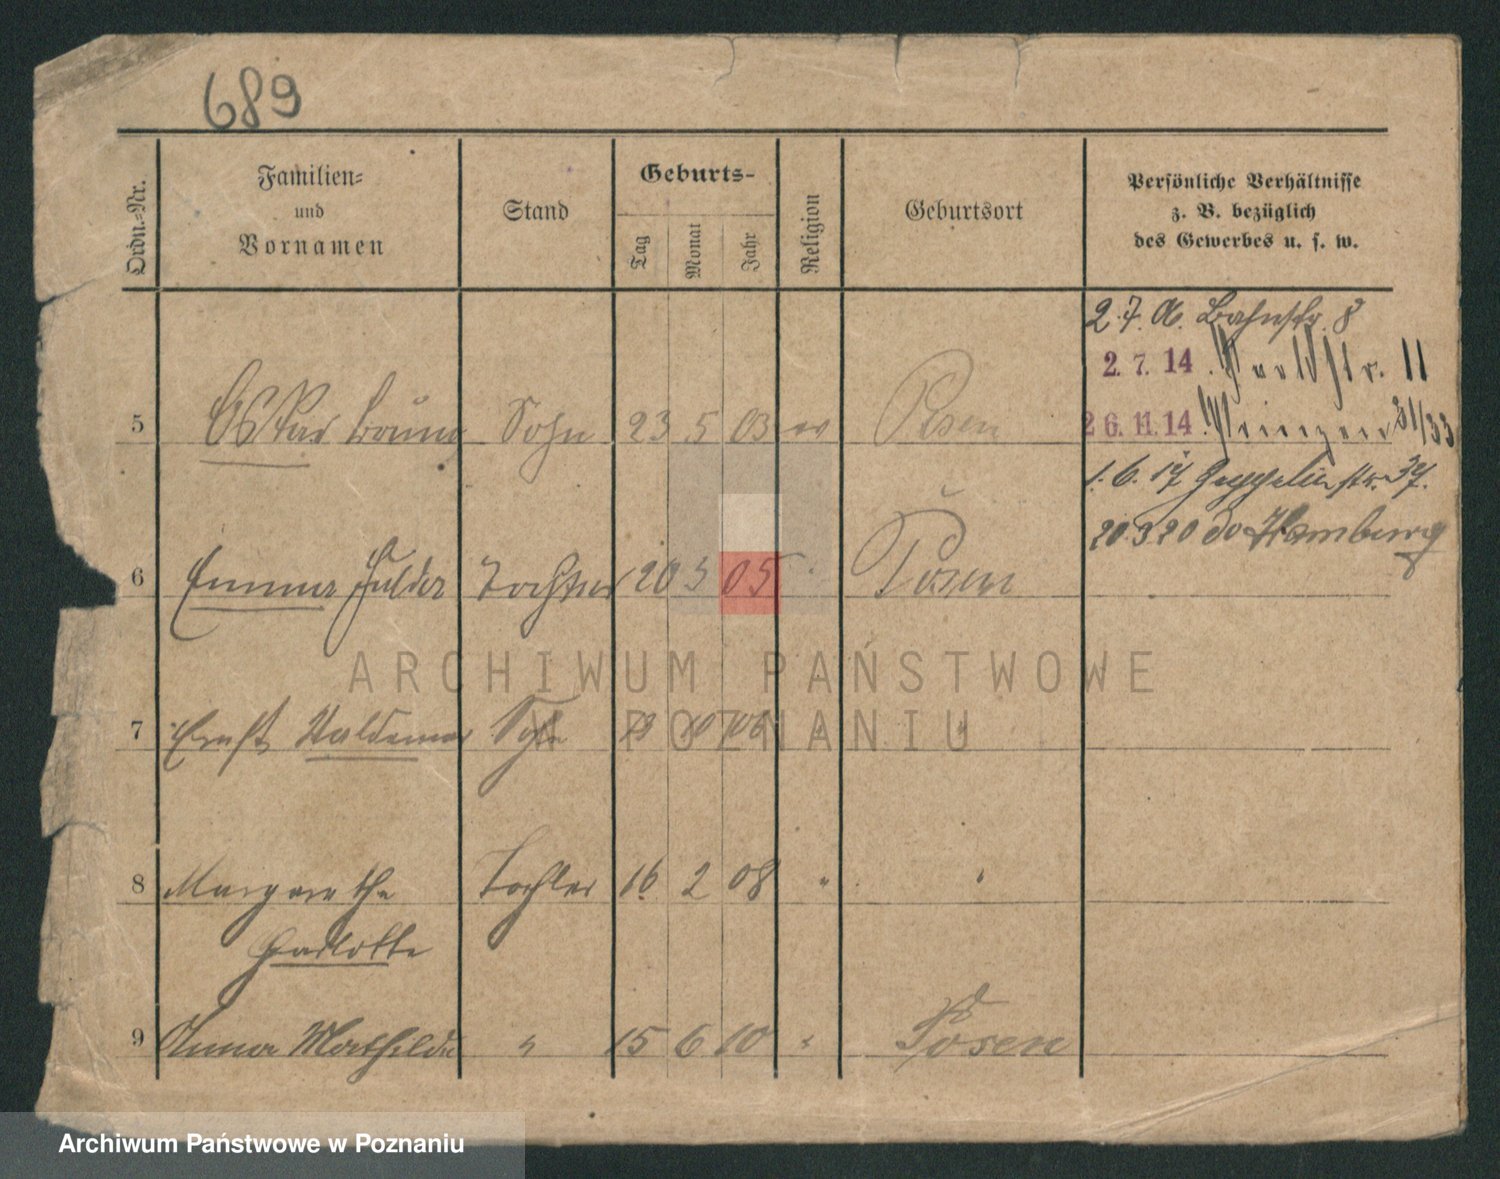 689
Ordn.-Nr.
Familien-
und
Vornamen
Stand
Geburts-
Tag
Monat
Jahr
Religion
Geburtsort
Persönliche Verhältnisse
z. B. bezüglich
des Gewerbes u. s. w.
2.7.06. Bahnstr. 8
2. 7. 14
11
26. 11. 14 Prinzen 31/33
1. 6. 17 Zeppelinstr. 37.
20.3.20 do Hamburg
5 Oskar Bruno Sohn 23 5 03 ev Posen
6 Emma Hulda Tochter 20 5 05 " Posen
7 Ernst Waldemar Sohn 10 06 "
8 Margarethe Tochter 16 2 08 " "
Charlotte
9 Anna Mathilde " 15 6 10 " Posen
ARCHIWUM PAŃSTWOWE
W POZNANIU
Archiwum Państwowe w Poznaniu